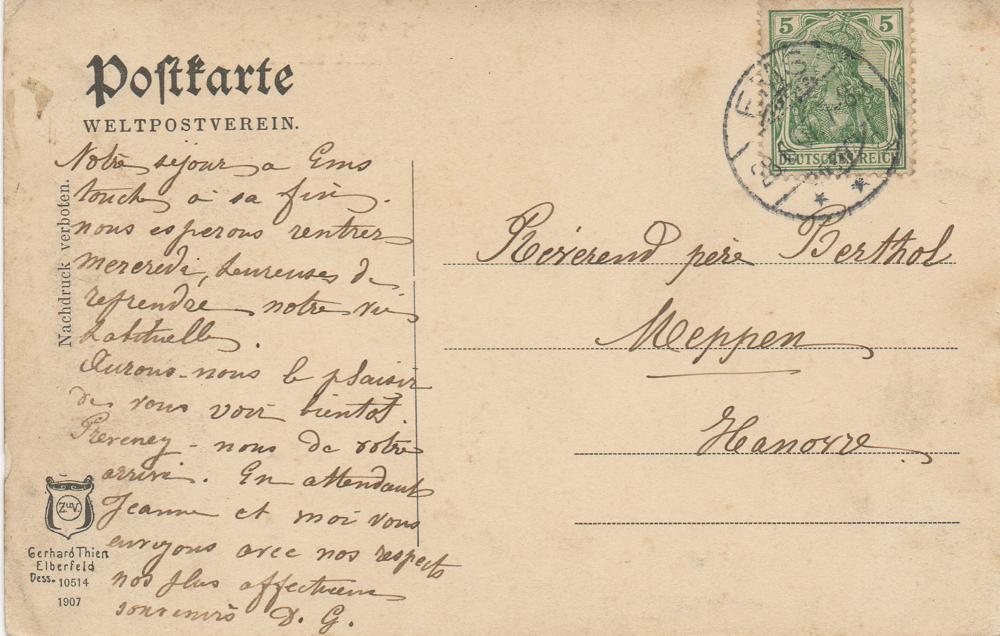 Postkarte
WELTPOSTVEREIN.
Nachdruck verboten.
Notre séjour a Ems
touche à sa fin.
nous esperons rentrer
mercredi, heureuses de
reprendre notre vie
habituelle.
Aurons-nous le plaisir
de vous voir bientôt.
Preveney-nous de votre
arrivé. En attendant
Jeanne et moi vous
envoyons avec nos respects
nos plus affectueux
souvenirs D. G.
Z.u.V.
Gerhard Thien
Elberfeld
Dess. 10514
1907
5 5
DEUTSCHES REICH
EMS
Révérend père Berthol
Meppen
Hanovre